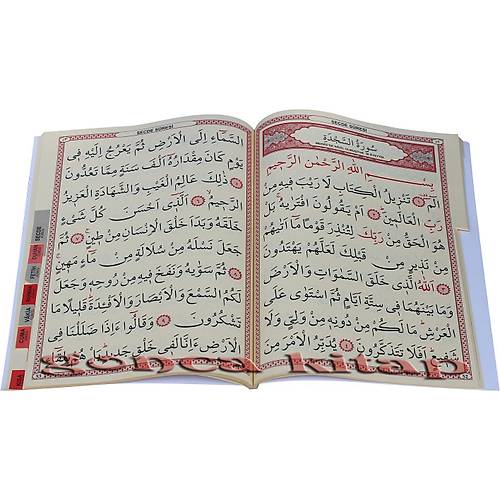 SECDE SÛRESİ
سُورَةُ السَّجْدَةِ
بِسْمِ اللّٰهِ الرَّحْمٰنِ الرَّحِيمِ
الٓمٓ ۝ تَنْزِيلُ الْكِتَابِ لَا رَيْبَ فِيهِ مِنْ
رَبِّ الْعَالَمِينَ ۝ اَمْ يَقُولُونَ افْتَرٰيهُ بَلْ
هُوَ الْحَقُّ مِنْ رَبِّكَ لِتُنْذِرَ قَوْمًا مَٓا اَتٰيهُمْ
مِنْ نَذِيرٍ مِنْ قَبْلِكَ لَعَلَّهُمْ يَهْتَدُونَ
۝ اَللّٰهُ الَّذِي خَلَقَ السَّمٰوَاتِ وَالْاَرْضَ
وَمَا بَيْنَهُمَا فِي سِتَّةِ اَيَّامٍ ثُمَّ اسْتَوٰى عَلَى
الْعَرْشِ مَا لَكُمْ مِنْ دُونِهِ مِنْ وَلِيٍّ وَلَا
شَفِيعٍ اَفَلَا تَتَذَكَّرُونَ ۝ يُدَبِّرُ الْاَمْرَ مِنَ
SECDE SÛRESİ
السَّمَٓاءِ اِلَى الْاَرْضِ ثُمَّ يَعْرُجُ اِلَيْهِ فِي
يَوْمٍ كَانَ مِقْدَارُهُٓ اَلْفَ سَنَةٍ مِمَّا تَعُدُّونَ
۝ ذٰلِكَ عَالِمُ الْغَيْبِ وَالشَّهَادَةِ الْعَزِيزُ
الرَّحِيمُ ۝ اَلَّذِٓي اَحْسَنَ كُلَّ شَيْءٍ
خَلَقَهُ وَبَدَاَ خَلْقَ الْاِنْسَانِ مِنْ طِينٍ ۝ ثُمَّ
جَعَلَ نَسْلَهُ مِنْ سُلَالَةٍ مِنْ مَٓاءٍ مَهِينٍ
۝ ثُمَّ سَوّٰيهُ وَنَفَخَ فِيهِ مِنْ رُوحِهِ وَجَعَلَ
لَكُمُ السَّمْعَ وَالْاَبْصَارَ وَالْاَفْـِٔدَةَ قَلِيلًا مَا
تَشْكُرُونَ ۝ وَقَالُٓوا ءَاِذَا ضَلَلْنَا فِي
الْاَرْضِ ءَاِنَّا لَفِي خَلْقٍ جَدِيدٍ بَلْ هُمْ
SECDE
FETİH
CUMA
kitap